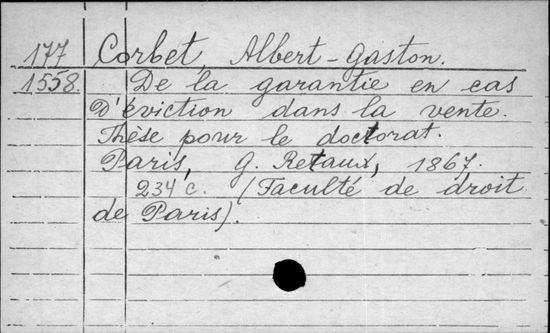 177 Corbet, Albert-Gaston.
1558. De la garantie en cas
D'éviction dans la vente.
Thèse pour le doctorat.
Paris, G. Retaux, 1867.
234 c. (Faculté de droit
de Paris).